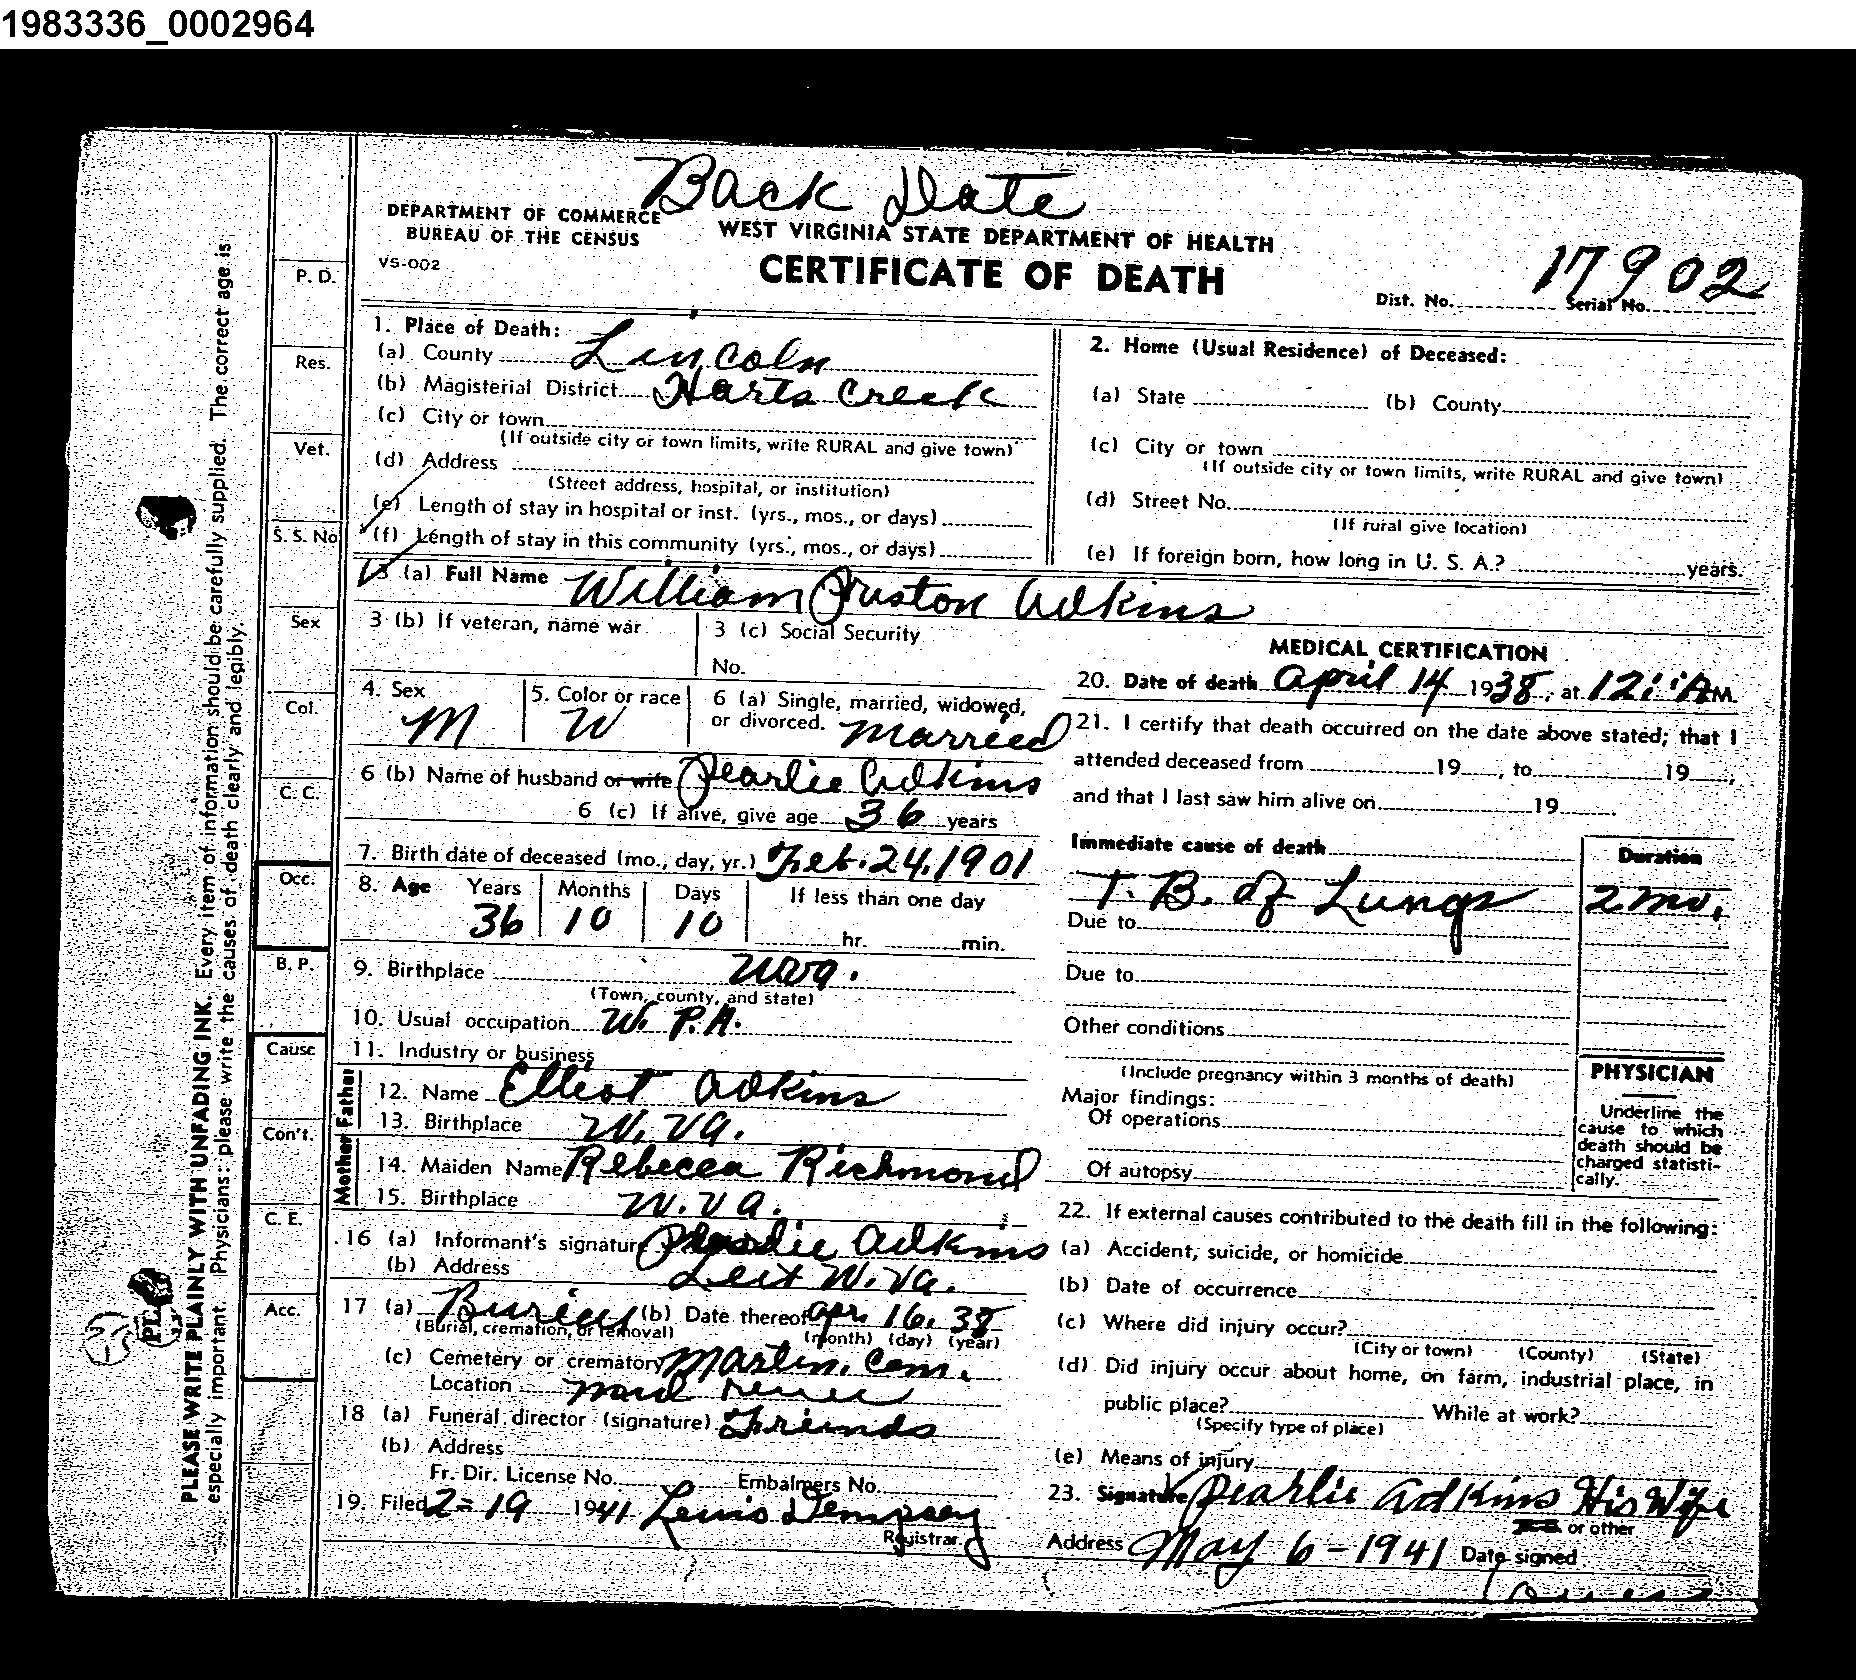 1983336_0002964
Back Date
DEPARTMENT OF COMMERCE
BUREAU OF THE CENSUS
WEST VIRGINIA STATE DEPARTMENT OF HEALTH
VS-002
CERTIFICATE OF DEATH
17902
Dist. No. Serial No.
1. Place of Death:
(a) County Lincoln
(b) Magisterial District Harts Creek
(c) City or town
(If outside city or town limits, write RURAL and give town)
(d) Address
(Street address, hospital, or institution)
(e) Length of stay in hospital or inst. (yrs., mos., or days)
(f) Length of stay in this community (yrs., mos., or days)
2. Home (Usual Residence) of Deceased:
(a) State (b) County
(c) City or town
(If outside city or town limits, write RURAL and give town)
(d) Street No.
(If rural give location)
(e) If foreign born, how long in U. S. A.? years.
3 (a) Full Name William Pruston Adkins
3 (b) If veteran, name war
3 (c) Social Security
No.
4. Sex M
5. Color or race W
6 (a) Single, married, widowed,
or divorced. Married
6 (b) Name of husband or wife Pearlie Adkins
6 (c) If alive, give age 36 years
7. Birth date of deceased (mo., day, yr.) Feb. 24, 1901
8. Age Years Months Days If less than one day
36 10 10 hr. min.
9. Birthplace W.Va.
(Town, county, and state)
10. Usual occupation W. P.A.
11. Industry or business
Father
12. Name Elliot Adkins
13. Birthplace W. Va.
Mother
14. Maiden Name Rebecca Richmond
15. Birthplace W. Va.
16 (a) Informant's signature Pearlie Adkins
(b) Address W. Va.
17 (a) Buriel (b) Date thereof Apr. 16, 38
(Burial, cremation, or removal) (month) (day) (year)
(c) Cemetery or crematory Martin. Cem.
Location
18 (a) Funeral director (signature) Freinds
(b) Address
Fr. Dir. License No. Embalmers No.
19. Filed 2-19 1941 Lewis Dempsey
Registrar
MEDICAL CERTIFICATION
20. Date of death April 14 1938, at 12: A M.
21. I certify that death occurred on the date above stated; that I
attended deceased from 19 , to 19 ,
and that I last saw him alive on 19
Immediate cause of death
Duration
T. B. of Lungs 2 mo.
Due to
Due to
Other conditions
(Include pregnancy within 3 months of death)
Major findings:
Of operations
Of autopsy
PHYSICIAN
Underline the
cause to which
death should be
charged statisti-
cally.
22. If external causes contributed to the death fill in the following:
(a) Accident, suicide, or homicide
(b) Date of occurrence
(c) Where did injury occur?
(City or town) (County) (State)
(d) Did injury occur about home, on farm, industrial place, in
public place? While at work?
(Specify type of place)
(e) Means of injury
23. Signature Pearlie Adkins His Wife
or other
Address May 6-1941 Date signed
P. D.
Res.
Vet.
S. S. No
Sex
Col.
C. C.
Occ.
B. P.
Cause
Con't.
C. E.
Acc.
PLEASE WRITE PLAINLY WITH UNFADING INK. Every item of information should be carefully supplied. The correct age is
especially important. Physicians: please write the causes of death clearly and legibly.